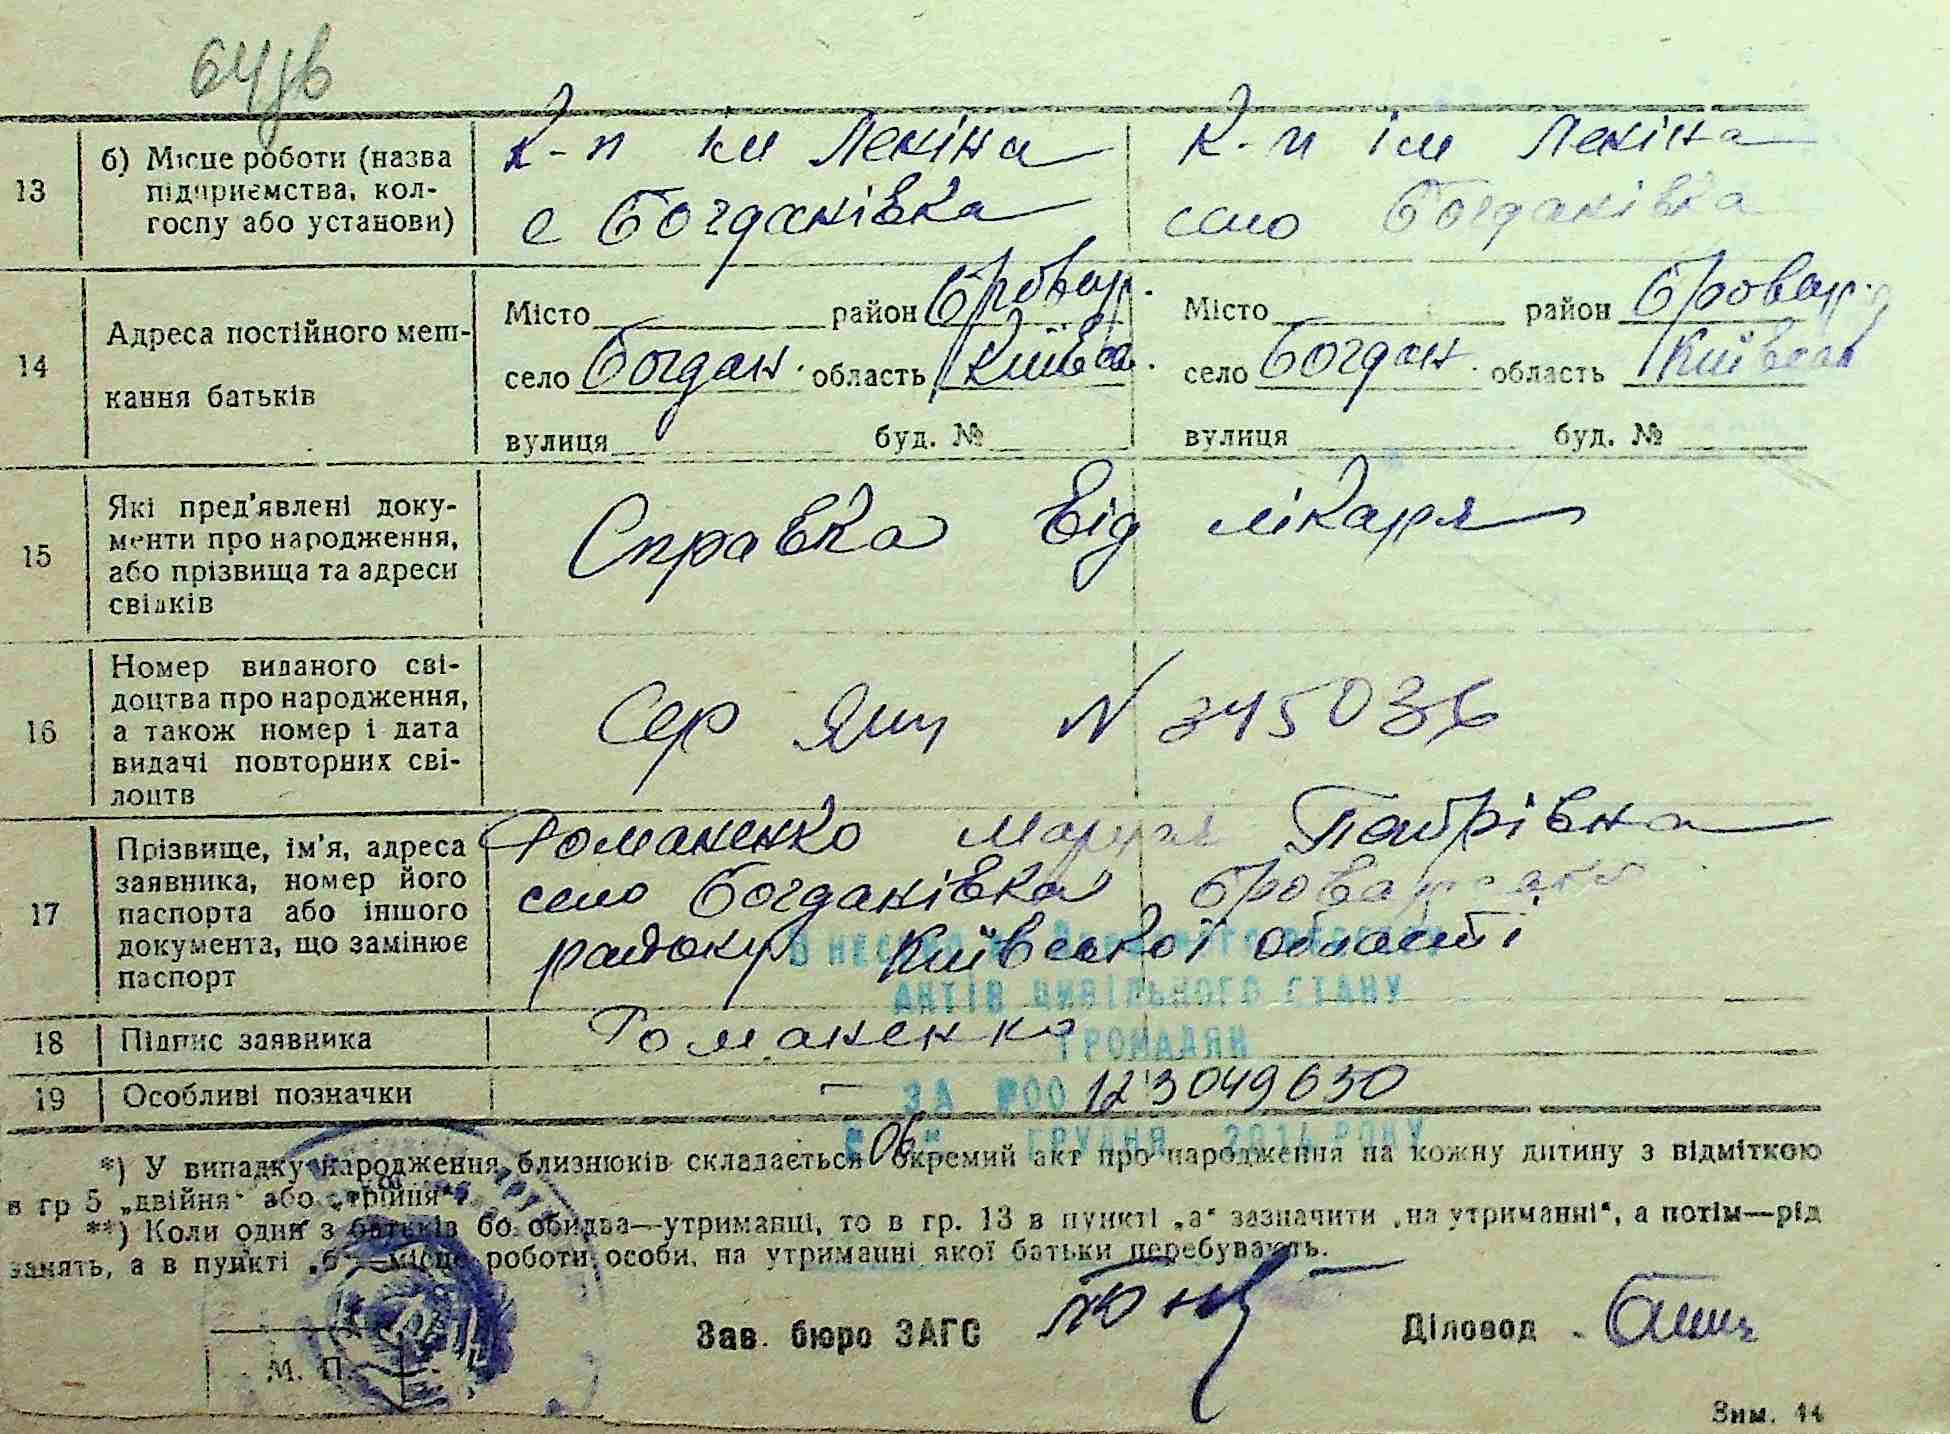 13
б) Місце роботи (назва
підприємства, кол-
госпу або установи)
К-п ім Леніна
с Богданівка
К-п ім Леніна
село Богданівка
14
Адреса постійного меш-
кання батьків
Місто район Бровар.
село Богдан. область Київсь.
вулиця буд. №
Місто район Бровар.
село Богдан. область Київськ
вулиця буд. №
15
Які пред'явлені доку-
менти про народження,
або прізвища та адреси
свідків
Справка від лікаря
16
Номер виданого сві-
доцтва про народження,
а також номер і дата
видачі повторних сві-
доцтв
Сер N 345036
17
Прізвище, ім'я, адреса
заявника, номер його
паспорта або іншого
документа, що замінює
паспорт
Романенко Марія Петрівна
село Богданівка Броварського
району Київської області
АКТІВ ЦИВІЛЬНОГО СТАНУ
ГРОМАДЯН
18
Підпис заявника
Романенко
19
Особливі позначки
—
ЗА №00 123049630
06 ГРУДНЯ 2014 РОКУ
*) У випадку народження близнюків складається окремий акт про народження на кожну дитину з відміткою
в гр 5 „двійня“ або „трійня“.
**) Коли один з батьків бо обидва—утриманці, то в гр. 13 в пункті „а“ зазначити „на утриманні“, а потім—рід
занять, а в пункті „б“—місце роботи особи, на утриманні якої батьки перебувають.
Зав. бюро ЗАГС
Діловод
М. П.
Зим. 44